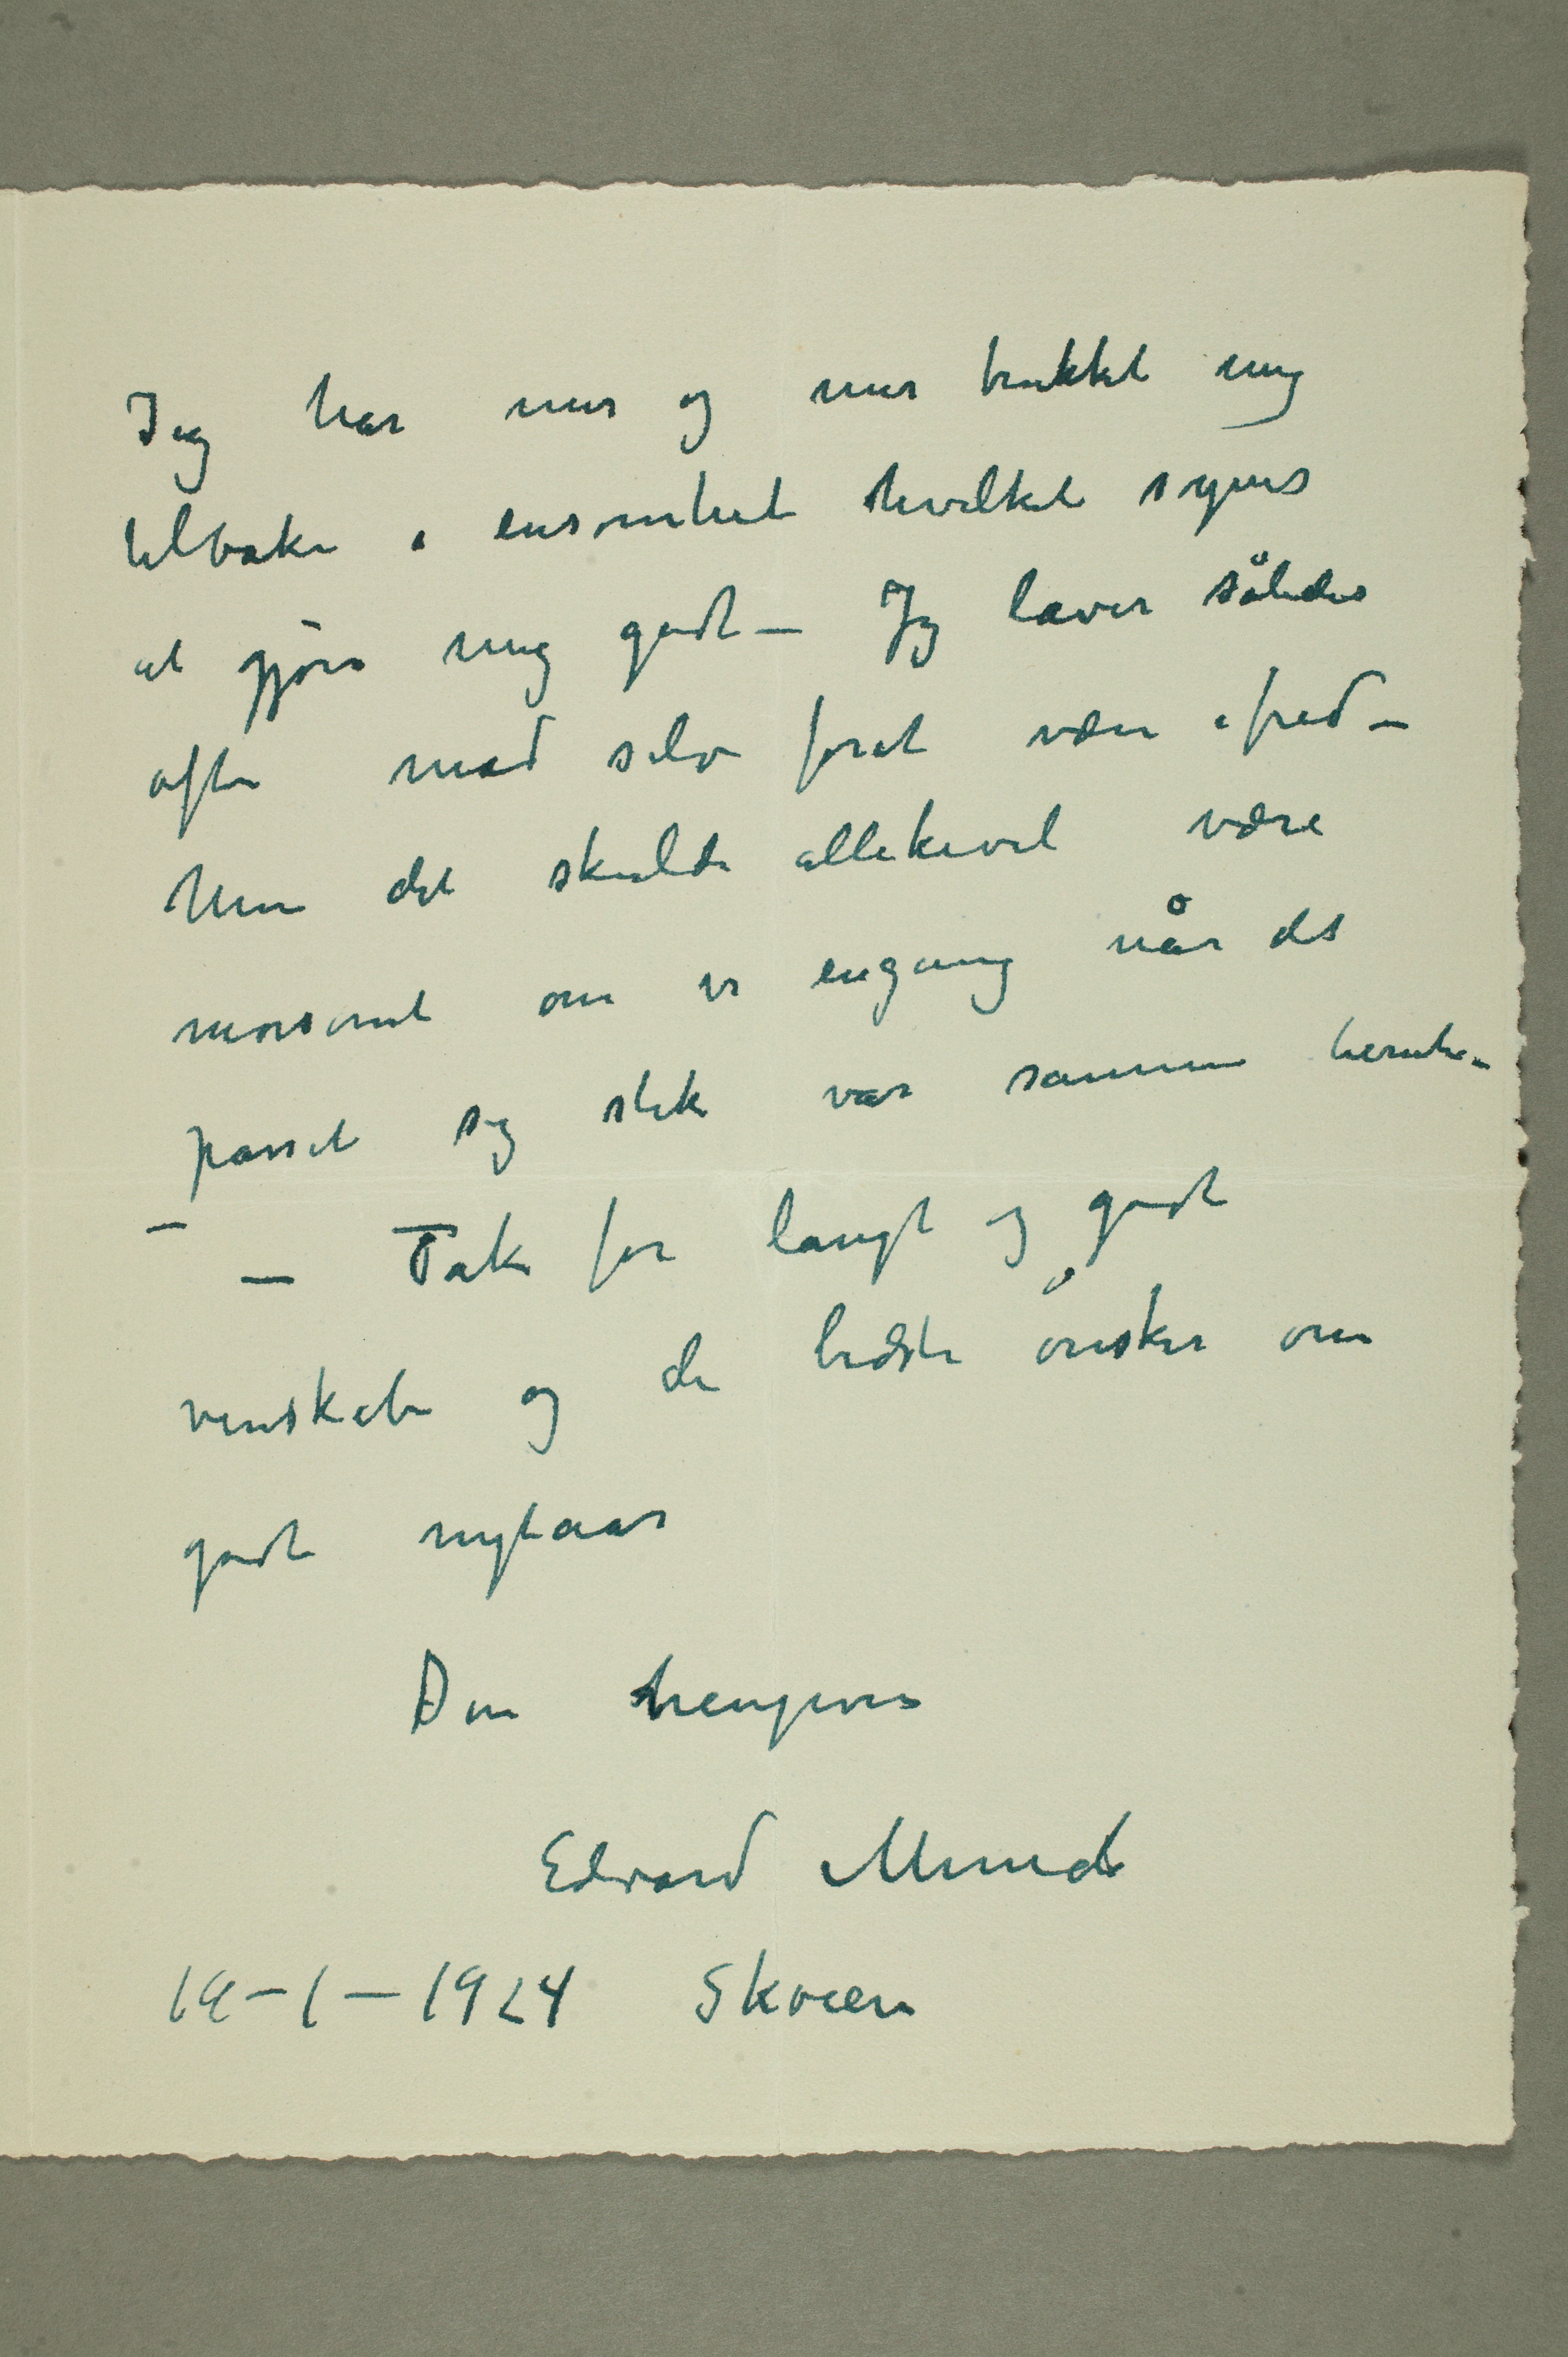 Jeg har mer og mer trukket mig
tilbake i ensomhet hvilket synes
at gjøre mig godt – Jeg laver således
ofte mad selv forat være i fred –
Men det skulde allikevel være
morsomt om vi engang når det
passet sig slik var sammen herute –
–
– Tak for langt og godt
venskab og de bedste ønsker om
godt nytaar
Din hengivne
Edvard Munch
19–1–1924 Skøien